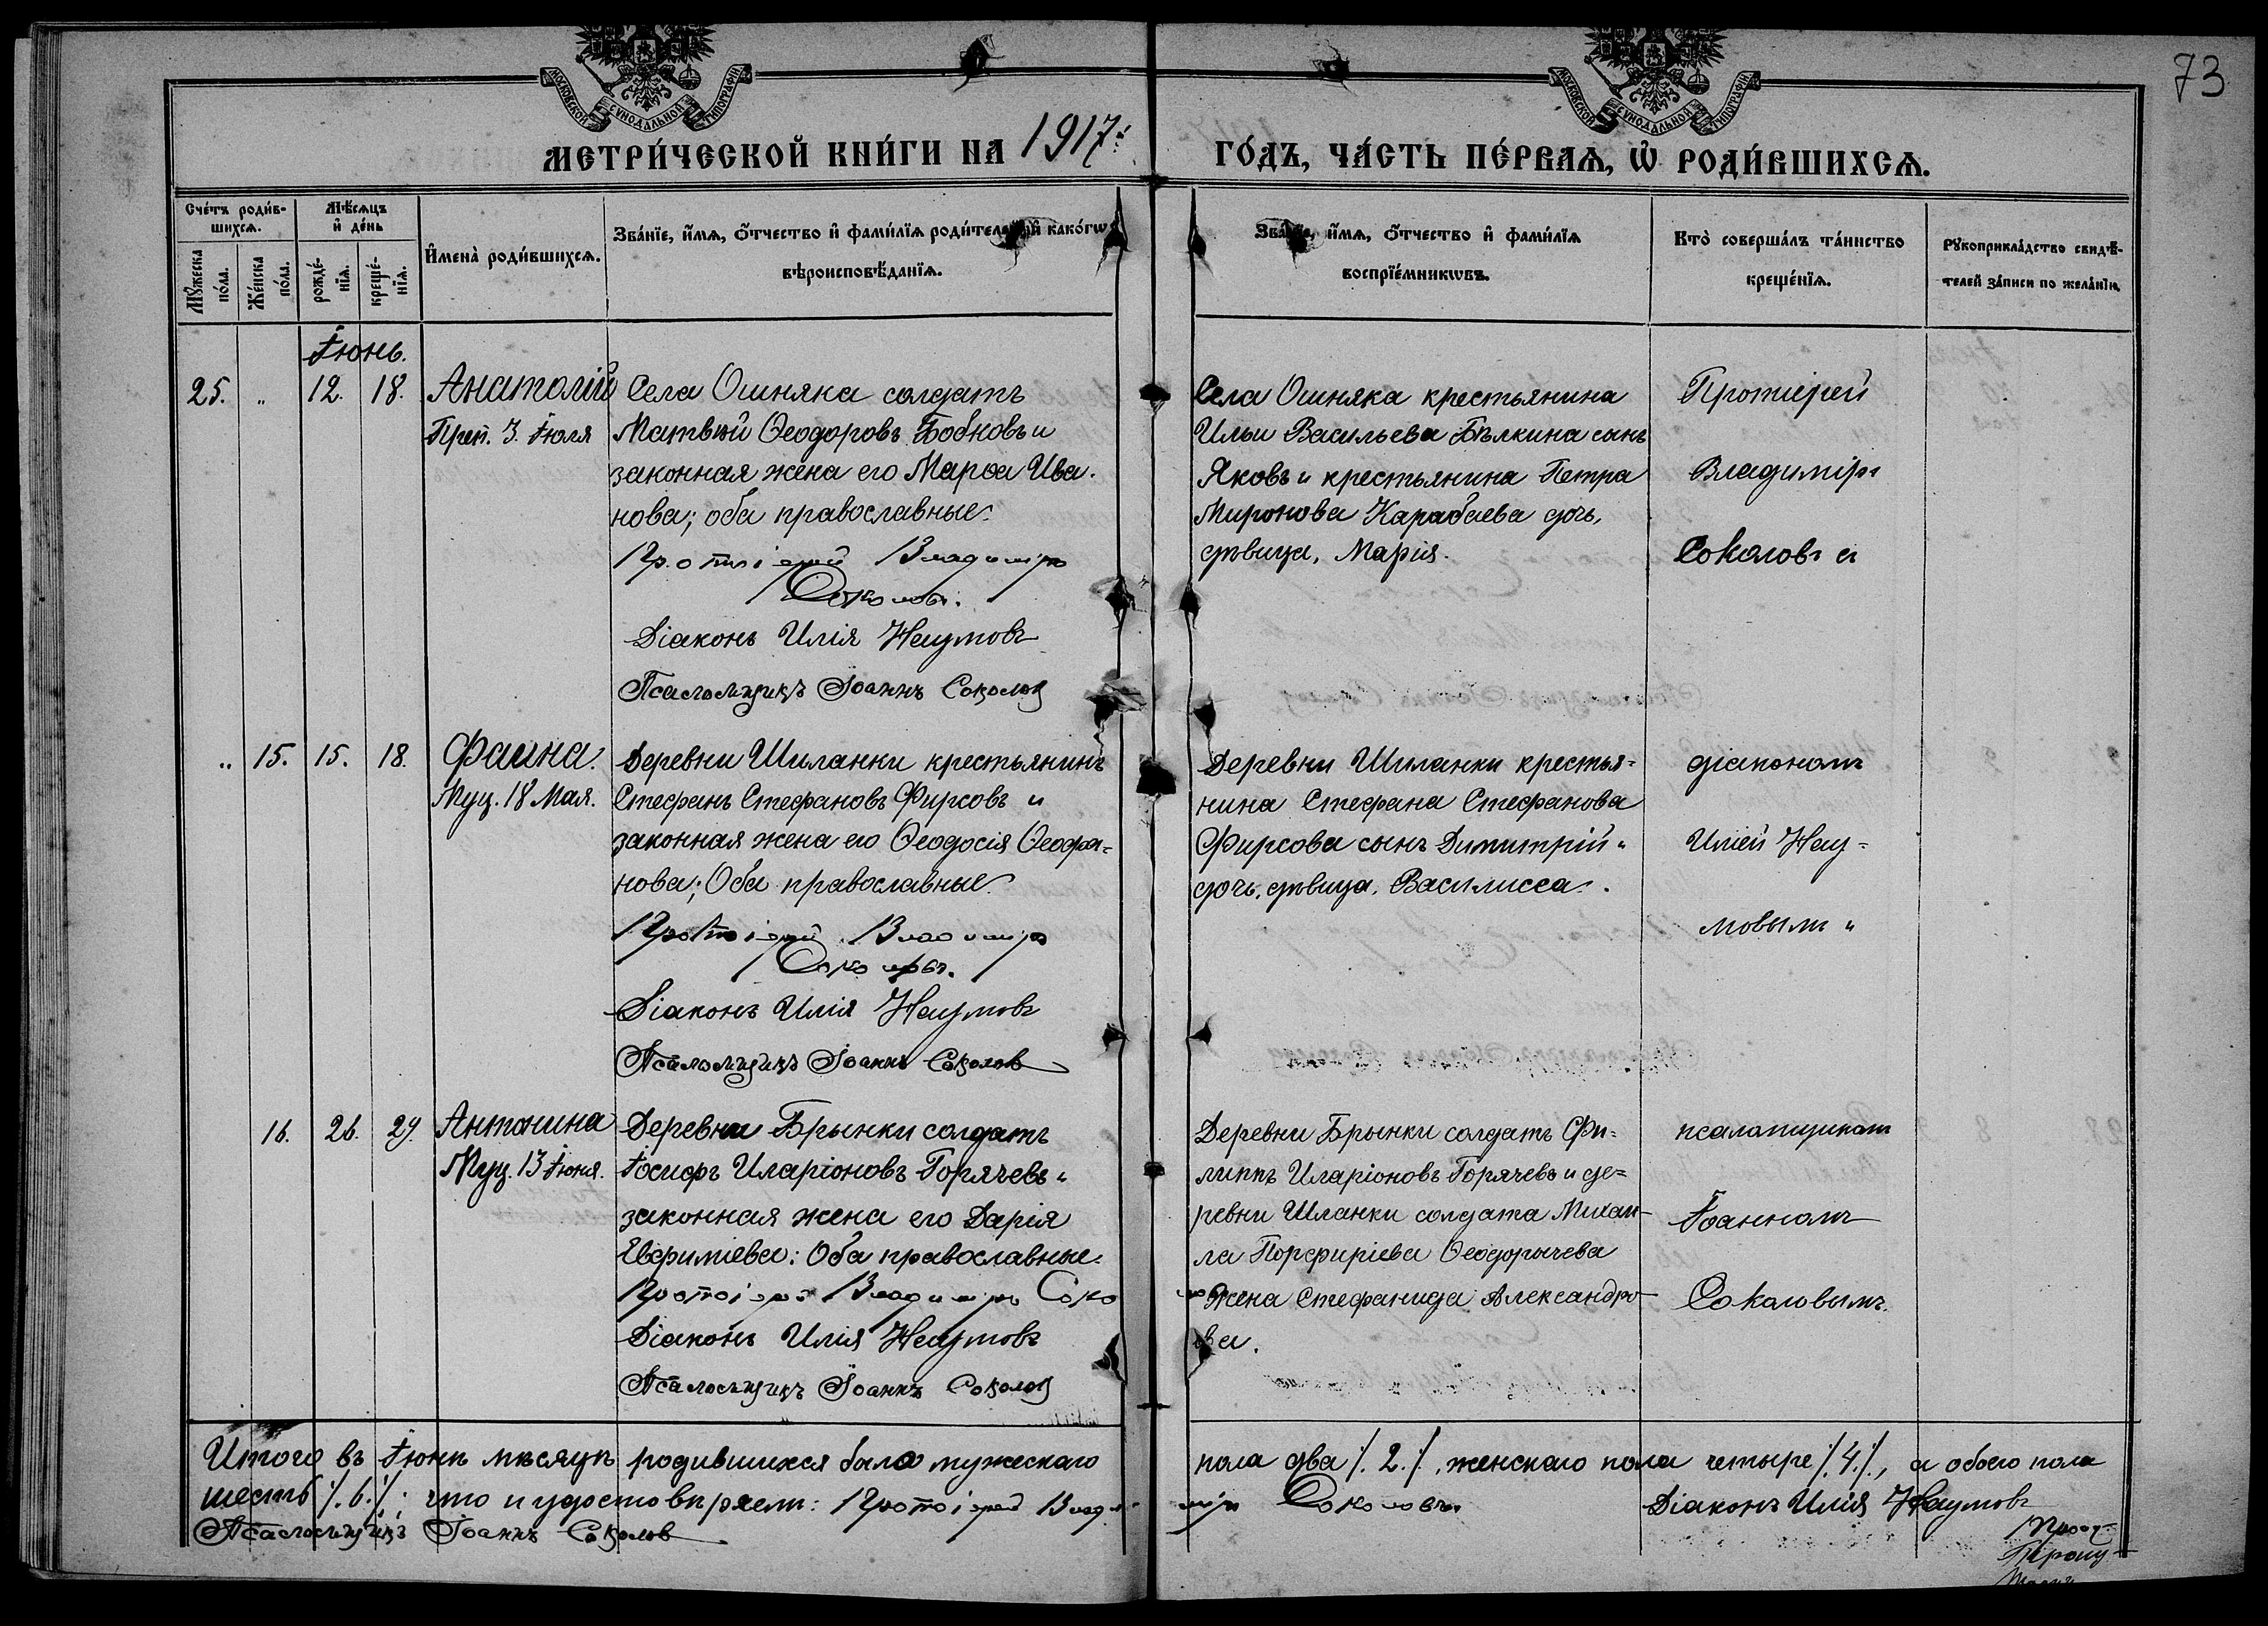 73
МОСКОВСКОЙ СѴНОДАЛЬНОЙ ТИПОГРАФІИ
МОСКОВСКОЙ СѴНОДАЛЬНОЙ ТИПОГРАФІИ
МЕТРИ́ЧЕСКОЙ КНИ́ГИ НА 1917й
ГО́ДЪ, ЧА́СТЬ ПЕ́РВАѦ, Ѡ РОДИ́ВШИХСѦ.
Сче́тъ роди́в-
шихсѧ.
Мужеска
по́ла.
Же́нска
по́ла.
Мѣ́сѧцъ
и де́нь
рожде́-
нїѧ.
креще́-
нїѧ.
И҆мена̀ роди́вшихсѧ.
Зва́нїе, и҆́мѧ, ѻ҆́тчество и҆ фами́лїѧ роди́телей, и҆ како́гѡ
вѣроисповѣ́данїѧ.
Зва́нїе, и҆́мѧ, ѻ҆́тчество и҆ фами́лїѧ
воспрїе́мникѡвъ.
Кто̀ соверша́лъ та́инство
креще́нїѧ.
Рꙋкоприкла́дство свидѣ́-
телей за́писи по жела́нїю.
Іюнь.
25. " 12. 18. Анатолій
Преп. 3. Іюля
Села Ошняка солдатъ
Матвѣй Ѳеодоровъ Бобковъ и
законная жена его Марѳа Ива-
нова; оба православные.
Протоіерей Владиміръ
Соколовъ.
Діаконъ Илія Наумовъ
Псаломщикъ Іоаннъ Соколов
Села Ошняка крестьянина
Ильи Васильева Бѣлкина сынъ
Яковъ и крестьянина Петра
Миронова Карабаева дочь,
дѣвица, Марія.
Протіерей
Владиміръ
Соколовъ съ
" 15. 15. 18. Фаина.
Муц. 18 Мая.
Деревни Шиланки крестьянинъ
Стефанъ Стефановъ Фирсовъ и
законная жена его Ѳеодосія Ѳеофа-
нова; Оба православные.
Протоіерей Владиміръ
Соколовъ.
Діаконъ Илія Наумовъ
Псаломщикъ Іоаннъ Соколов
Деревни Шиланки крестья-
нина Стефана Стефанова
Фирсова сынъ Димитрій и
дочь, дѣвица, Василисса.
діакономъ
Иліей Нау-
мовымъ и
16. 26. 29. Антонина
Муц. 13 Іюня.
Деревни Брынки солдатъ
Іосифъ Иларіоновъ Горячевъ и
законная жена его Дарія
Евфиміева: Оба православные.
Протоіерей Владиміръ Соколовъ
Діаконъ Илія Наумовъ
Псаломщикъ Іоаннъ Соколов
Деревни Брынки солдатъ Фи-
липпъ Иларіоновъ Горячевъ и де-
ревни Шланки солдата Михаи-
ла Порфиріева
жена Стефанида Александро-
ва.
псаломщикомъ
Іоанномъ
Соколовымъ.
Итого въ Іюнѣ мѣсяцѣ родившихся было мужескаго
пола два /.2./, женскаго пола четыре /.4./, а обоего пола
шесть /.6./; что и удостовѣряемъ: Протоіерей Влади-
міръ Соколовъ. Діаконъ Илія Наумовъ
Псаломщикъ Іоаннъ Соколов